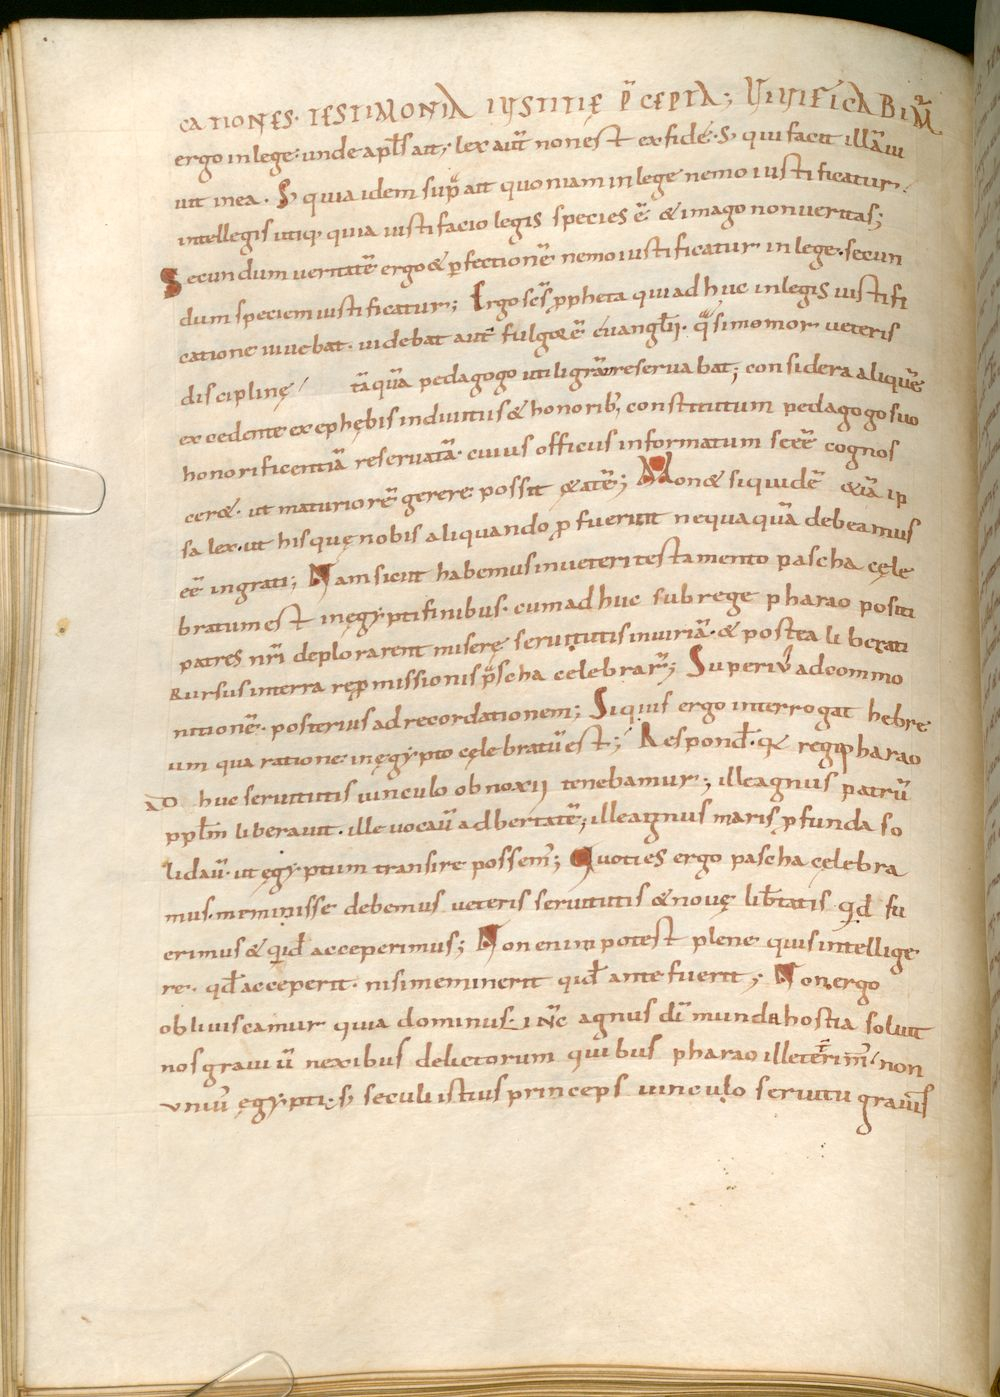 CATIONES· TESTIMONIA IUSTITIĘ P̄CEPTA; VIVIFICABIM̄²
ergo in lege· unde apl̄s ait; lex aut̄ non est ex fide· S; qui facit illā viu
vit in ea· S; quia idem sup̄ ait quoniam in lege nemo iustificatur·
intellegis utiq; quia iusti facio legis species ē & imago non veritas;
Secundum veritatē ergo & ꝑfectionē nemo iustificatur in lege· secun
dum speciem iustificatur; Ergo sc̄s ꝓpheta qui adhuc in legis iustifi
catione vivebat· videbat aut̄ fulgorē evangelij· q̄si momor veteris
disciplinę tāquā pedagogo utili gr̄am reservabat; considera aliquē
excedente ex ephębis in divitiis & honorib; constitutum pedagogo suo
honorificentiā reservatā· cuius officiis informatum se eē cognos
ceret· ut maturiorē gerere possit ętatē; Monet siquidē &iā ip
sa lex· ut his quę nobis aliquando ꝓfuerunt nequaquā debeamus
eē ingrati; Nam sicut habemus in veteri testamento pascha cęle
bratum est in ęgypti finibus· cum adhuc sub rege pharao positi
patres nr̄i deplorarent miserę servitutis iniuriā· & postea liberati
Rursus in terra repromissionis pascha celebrarun̄t; Superius ad commo
nitionē· posterius ad recordationem; Siquis ergo interrogat hebrę
um qua ratione in ęgypto cęlebratū est; Respond̄· q& regi pharao
AD huc servitutis vinculo obnoxii tenebamur; ille agnus patrū
ppl̄m liberavit· ille vocavit ad libertatē; ille agnus maris ꝓfunda so
lidavit· ut ęgyptum transire possem̄; Quoties ergo pascha cęlebra
mus· meminisse debemus veteris servitutis & novę lib̄tatis· qd̄ fu
erimus & qid̄ acceperimus; Non enim potest plene quis intellige
re· qd̄ acceperit· nisi meminerit qid̄ ante fuerit; Non ergo
obliviscamur quia dominus· i n̄c agnus dī munda hostia solvit
nos gravium nexibus delictorum quibus pharao ille teterrim̄· non
unius ęgypti· s; seculi istius princeps vinculo servitu gravis